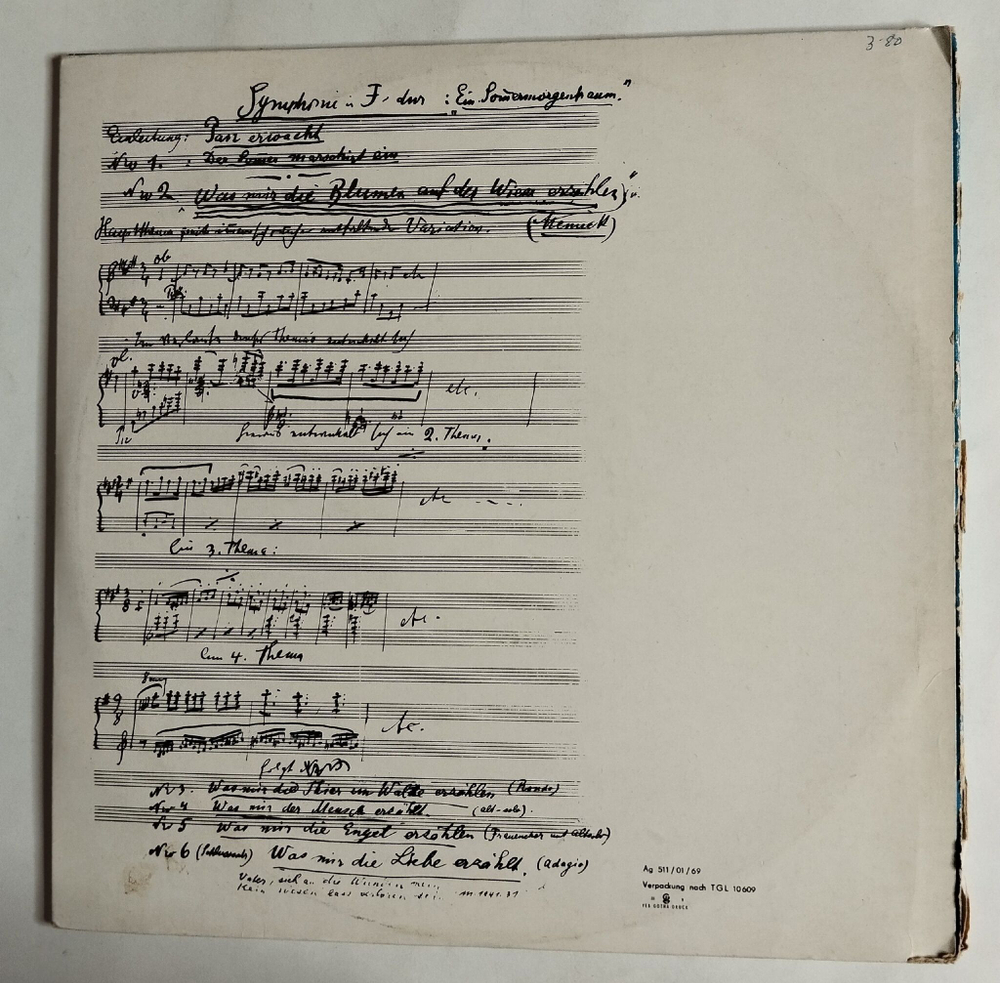 3-80
Symphonie in F-dur : „Ein Som̅ermorgentraum."
Einleitung: Pan erwacht
Nro 1. : Der Som̅er marschirt ein
Nro 2 „Was mir die Blumen auf der Wiese erzählen"
Hauptthema Variation. (Menuett)
ob
Im Verlaufe dieses Themas entwickelt sich
etc.
hieraus entwickelt sich ein 2. Thema:
etc
Ein 3. Thema:
etc.
Ein 4. Thema
8
etc.
folgt Nro 3
Nr 3. Was mir die Thier im Walde erzählen (Rondo)
Nro 4 Was mir der Mensch erzählt. (alt-solo).
Nr 5 Was mir die Engel erzählen (Frauenchor mit Altsolo)
Nro 6 (Schlusssatz) Was mir die Liebe erzählt. (Adagio)
Vater, sieh an die Wunden mein
Kein Wesen lass verloren sein
Ag 511/01/69
Verpackung nach TGL 10609
VEB GOTHA DRUCK